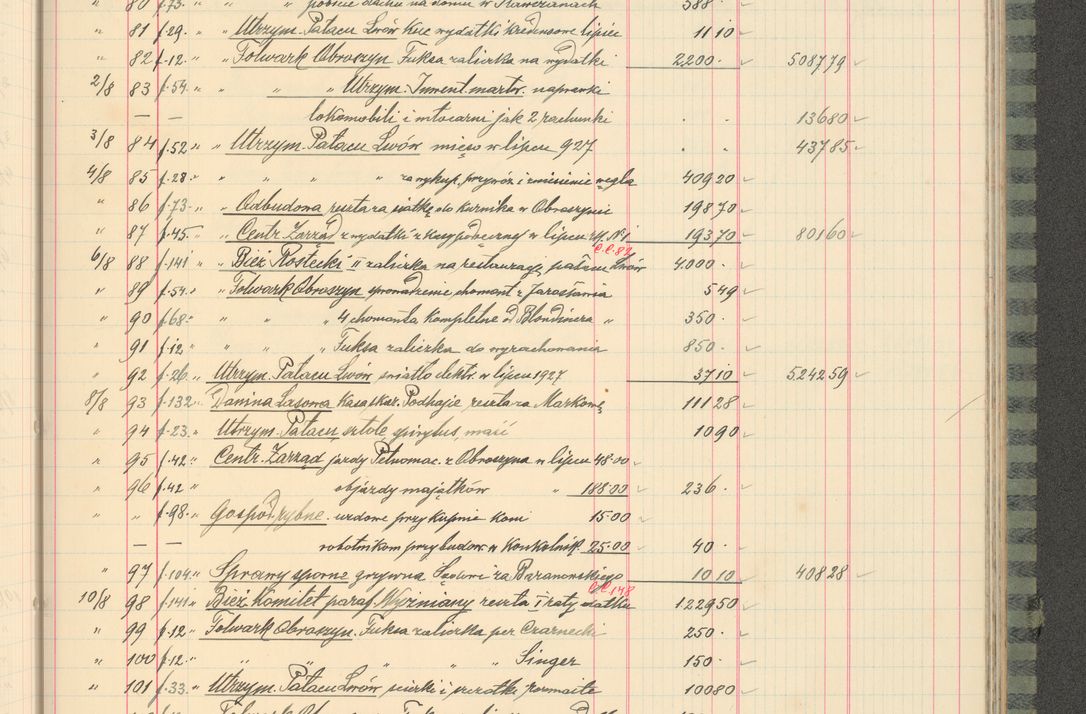 " 80 f.73. " " pobicie dachu na domu w Rawczanach 588 ·
" 81 f.29. " " Utrzym. Pałacu Lwów Kuc wydatki kredensowe lipiec 11 10
" 82 f.12. " " Folwark Obroszyn Fuksa zaliczka na wydatki 2200 · 508779
2/8 83 f.54. " " " " Utrzym. Inwent. martw. naprawki
— — lokomobili i młocarni jak 2 rachunki · · 13680
3/8 84 f.52 " " Utrzym. Pałacu Lwów mięso w lipcu 927 · · 43785
4/8 85 f.28 " " " " " za wykup. przywóz i zniesienie węgla 409 20
" 86 f.73. " " Odbudowa reszta za siatkę do kurnika w Obroszynie 198 70
" 87 f.45. " " Centr. Zarząd z wydatki z Kasy podręcznej w lipcu W. N° 1 193 70 80160
C.C. 82
6/8 88 f.141 " " Bież. Rostecki II zaliczka na restaurację pałacu Lwów 4.000 ·
" 89 f.54. " " Folwark Obroszyn sprowadzenie chomont z Jarosławia 5 49
" 90 f.68. " " " 4 chomonta kompletne od Blondinera " 350 ·
" 91 f.12 " " " " Fuksa zaliczka do wyrachowania 850 ·
" 92 f.26. Utrzym. Pałacu Lwów światło elektr. w lipcu 1927 37 10 524259
8/8 93 f.132 " Danina Lasowa Kasa skar. Podhajce reszta za Markową 111 28
" 94 f.23. " Utrzym. Pałacu, sztole, spirytus, maść 10 90
" 95 f.42 " Centr. Zarząd jazdy Pełnomoc. z Obroszyna w lipcu 48·00
" 96 f.42 " objazdy majątków " 188·00 236 ·
" " f.98. Gospod. rybne. urzdowe przy kupnie koni 15·00
— — robotnikom przy budow. w Konkolnik. 25·00 40 ·
" 97 f.104. " Sprawy sporne grzywna Sądowi za Baranowskiego 10 10 40828
C.C. 148
10/8 98 f.141 " Bież. Komitet paraf. Wyżniany reszta I raty datku 1229 50
" 99 f.12 " Folwark Obroszyn. Fuksa zaliczka per Czarnecki 250 ·
" 100 f.12. " " " " " Singer 150 ·
" 101 f.33. " Utrzym. Pałacu Lwów ścierki i szczotki rozmaite 100 80